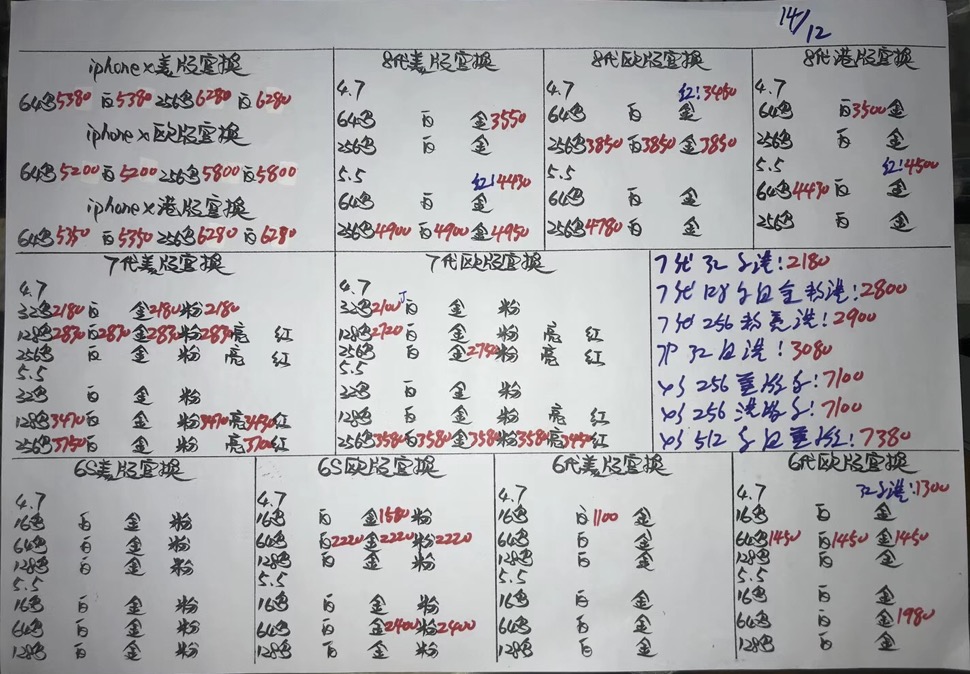 14/12
iphone x美版官换
64G色5380 白5380 256色6280 白6280
iphone x欧版官换
64色5200白5200 256色5800白5800
iphone x港版官换
64色5350白5350 256色6280白6280
8代美版官换
4.7
64色 白 金3550
256色 白 金
5.5 红:4430
64色 白 金
256色4900白4900金4950
8代欧版官换
4.7 红:3450
64色 白 金
256色3850白3850金3850
5.5
64色 白 金
256色4780白 金
8代港版官换
4.7
64色 白3500金
256色 白 金
5.5 红:4500
64色4430白 金
256色 白 金
7代美版官换
4.7
32色2180白 金2180粉2180
128色2830白2830金2830粉2830亮 红
256色 白 金 粉 亮 红
5.5
32色 白 金 粉
128色3470白 金 粉3470亮3430红
256色3750白 金 粉 亮3700红
7代欧版官换
4.7
32色2100白 金 粉
128色2720白 金 粉 亮 红
256色 白 金2750粉 亮 红
5.5
32色 白 金 粉
128色 白 金 粉 亮 红
256色3580白3580金3580粉3580亮3450红
7代 32 港:2180
7代 128 白金粉港:2800
7代 256 粉美港:2900
7P 32白港:3080
XS 256 :7100
XS 256 港 :7100
XS 512 白 :7380
6S美版官换
4.7
16色 白 金 粉
64色 白 金 粉
128色 白 金 粉
5.5
16色 白 金 粉
64色 白 金 粉
128色 白 金 粉
6S欧版官换
4.7
16色 白 金1580粉
64色 白2220金2220粉2220
128色 白 金 粉
5.5
16色 白 金 粉
64色 白 金2400粉2400
128色 白 金 粉
6代美版官换
4.7
16色 白1100 金
64色 白 金
128色 白 金
5.5
16色 白 金
64色 白 金
128色 白 金
6代欧版官换
4.7 32 港:1300
16色 白 金
64色1450 白1450金1450
128色 白 金
5.5
16色 白 金
64色 白 金1980
128色 白 金